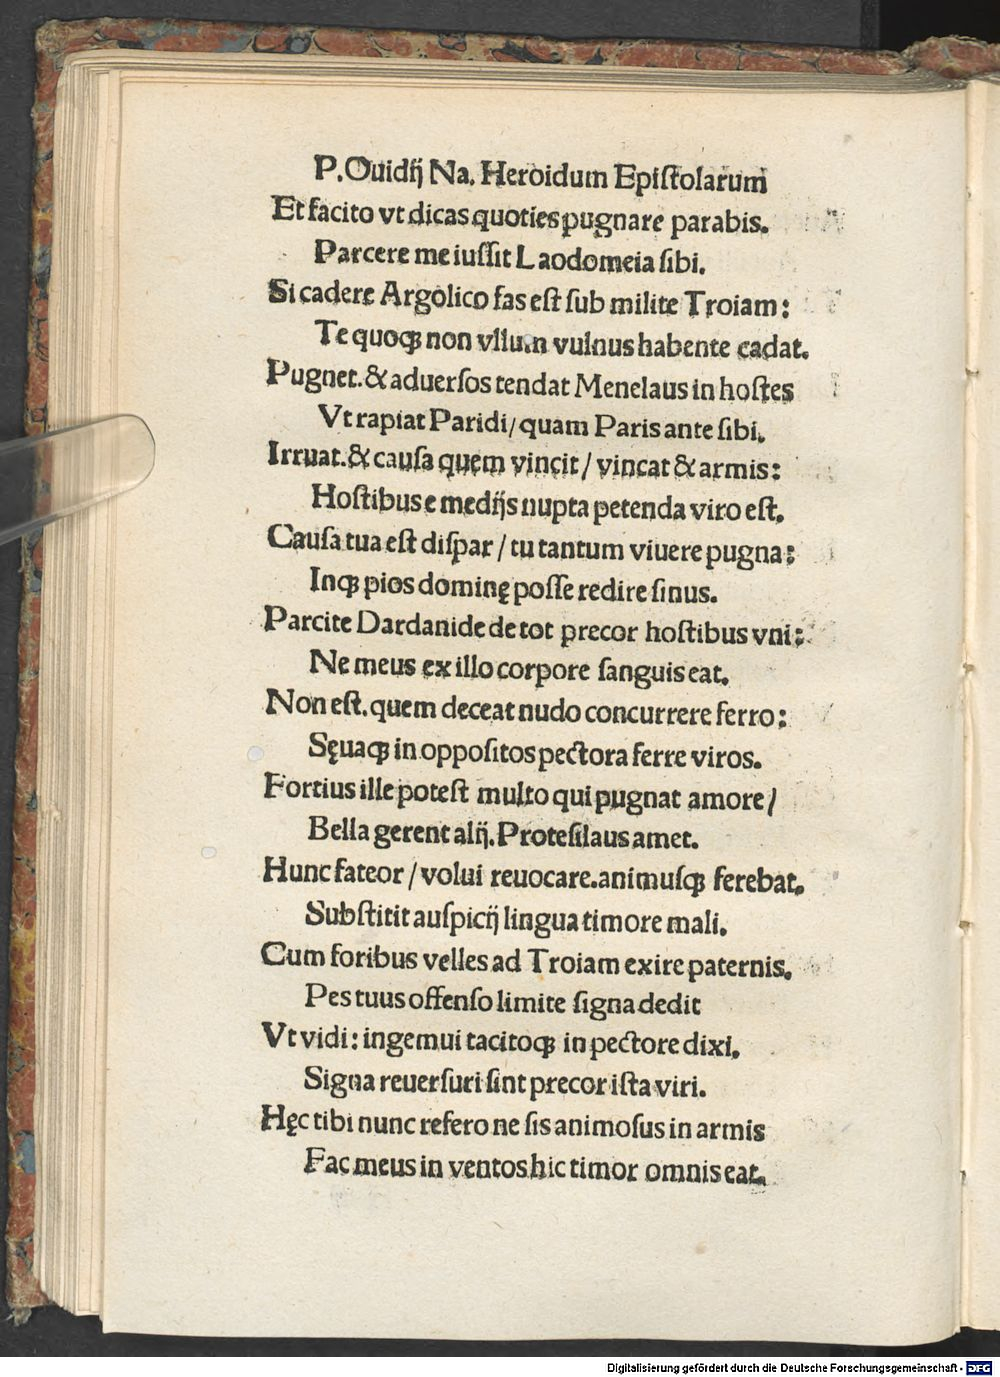 P. Ouidij Na. Heroidum Epiſtolarum
Et facito vt dicas quoties pugnare parabis.
Parcere me iuſſit Laodomeia ſibi.
Si cadere Argolico fas eſt ſub milite Troiam:
Te quoqꝫ non vllum vulnus habente cadat.
Pugnet. & aduerſos tendat Menelaus in hoſtes
Vt rapiat Paridi/ quam Paris ante ſibi.
Irruat. & cauſa quem vincit/ vincat & armis:
Hoſtibus e medijs nupta petenda viro eſt.
Cauſa tua eſt diſpar/ tu tantum viuere pugna:
Inqꝫ pios dominę poſſe redire ſinus.
Parcite Dardanide de tot precor hoſtibus vni:
Ne meus ex illo corpore ſanguis eat.
Non eſt. quem deceat nudo concurrere ferro:
Sęuaqꝫ in oppoſitos pectora ferre viros.
Fortius ille poteſt multo qui pugnat amore/
Bella gerent alij. Proteſilaus amet.
Hunc fateor/ volui reuocare. animuſqꝫ ferebat.
Subſtitit auſpicij lingua timore mali.
Cum foribus velles ad Troiam exire paternis.
Pes tuus offenſo limite ſigna dedit
Vt vidi: ingemui tacitoqꝫ in pectore dixi.
Signa reuerſuri ſint precor iſta viri.
Hęc tibi nunc refero ne ſis animoſus in armis
Fac meus in ventos hic timor omnis eat.
Digitalisierung gefördert durch die Deutsche Forschungsgemeinschaft - DFG